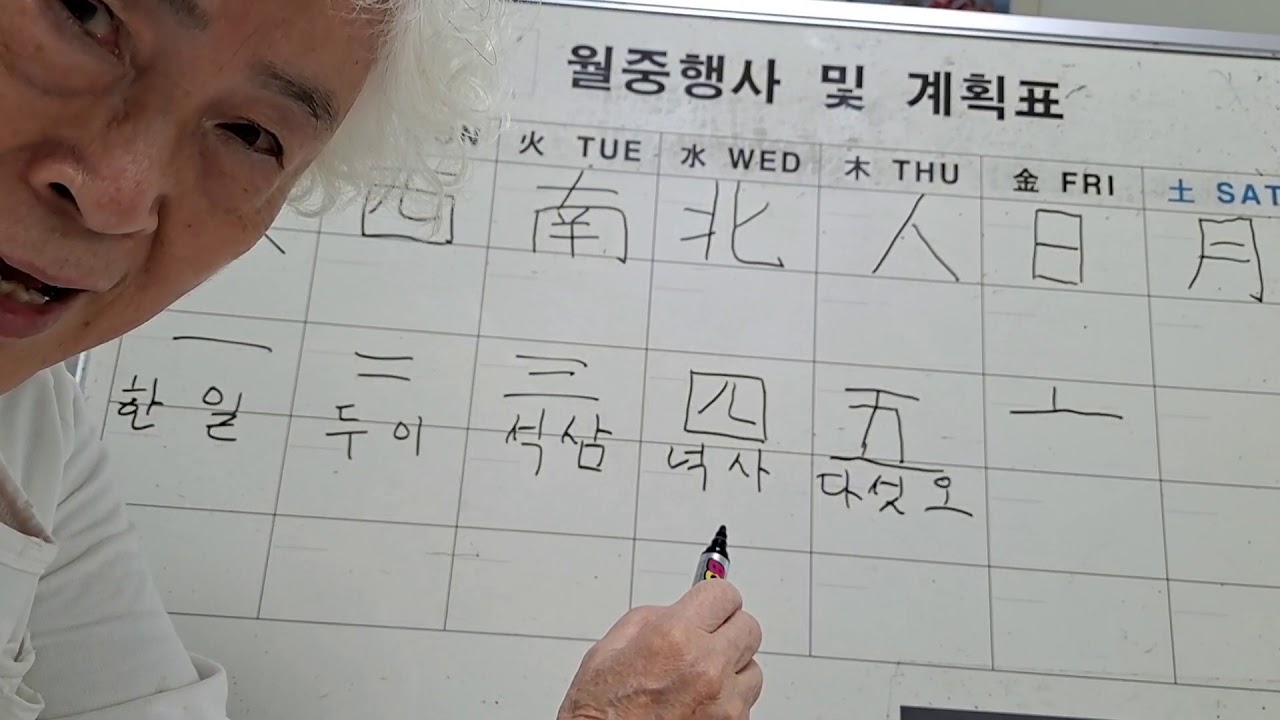 월중행사 및 계획표
火 TUE 水 WED 木 THU 金 FRI 土 SAT
西 南 北 人 日 月
一 二 三 四 五
한 일 두 이 석 삼 넉 사 다섯 오